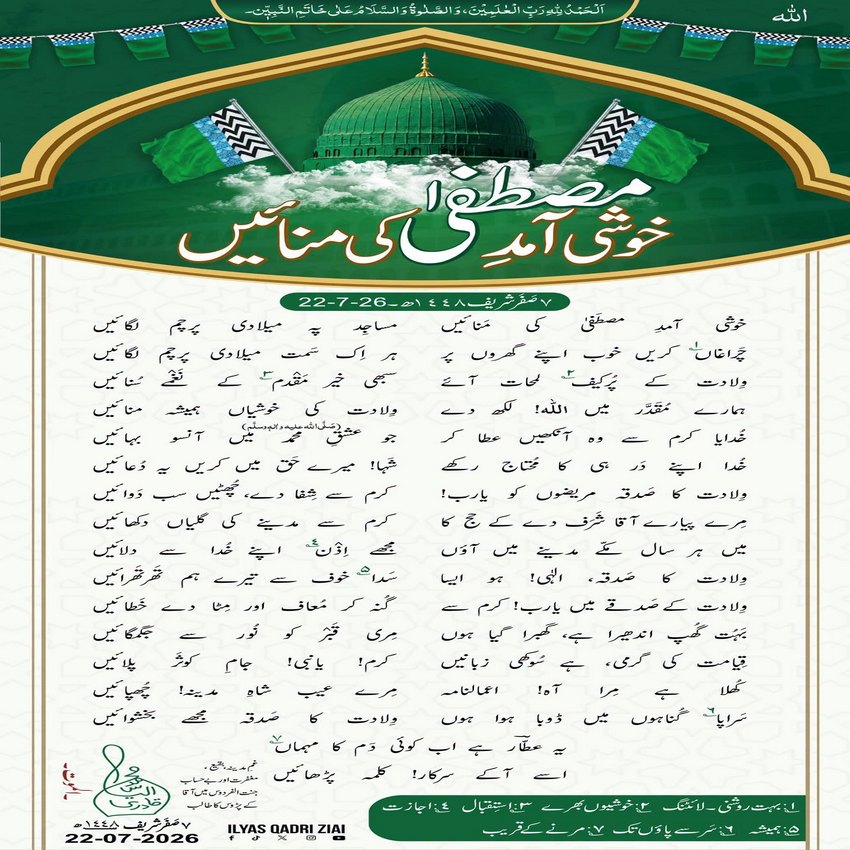 اَلْحَمْدُ لِلّٰهِ رَبِّ الْعٰلَمِیْنَ، وَالصَّلٰوۃُ وَالسَّلَامُ عَلٰی خَاتَمِ النَّبِیّٖن۔
اللہ
خوشی آمدِ مصطفٰی کی منائیں
۷ صَفَر شریف ۱٤٤۸ھ۔ 22-7-26
خوشی آمدِ مصطَفٰی کی مَنائیں مساجِد پہ میلادی پرچم لگائیں
چَراغاں۱ کریں خوب اپنے گھروں پر ہر اِک سَمت میلادی پرچم لگائیں
وِلادت کے پُرکیف۲ لمحات آئے سبھی خَیر مَقْدم۳ کے نَغمے سُنائیں
ہمارے مُقدَّر میں اللہ! لکھ دے وِلادت کی خوشیاں ہمیشہ منائیں
خُدایا کرم سے وہ آنکھیں عطا کر جو عشقِ محمد (صَلَّی اللہ علیہ واٰلہٖ وسلَّم) میں آنسو بہائیں
خُدا اپنے دَر ہی کا مُحتاج رکھے شَہا! میرے حَق میں کریں یہ دُعائیں
وِلادت کا صَدقہ مریضوں کو یارب! کرم سے شِفا دے، چُھٹیں سب دَوائیں
مِرے پیارے آقا شَرَف دے کے حج کا کرم سے مدینے کی گلیاں دکھائیں
میں ہر سال مکّے مدینے میں آؤں مجھے اِذْن٤ اپنے خُدا سے دلائیں
وِلادت کا صَدقہ، الٰہی! ہو ایسا سَدا۵ خوف سے تیرے ہم تَھرتَھرائیں
وِلادت کے صَدقے میں یارب! کرم سے گُنَہ کر مُعاف اور مِٹا دے خَطائیں
بَہُت گُھپ اندھیرا ہے، گھبرا گیا ہوں مِری قَبْر کو نُور سے جگمگائیں
قِیامت کی گرمی، ہے سُوکھی زبانیں کرم! یانبی! جامِ کوثَر پلائیں
کُھلا ہے مِرا آہ! اعمالنامہ مِرے عیب شاہِ مدینہ! چُھپائیں
سَراپا٦ گناہوں میں ڈوبا ہوا ہوں وِلادت کا صَدقہ مجھے بخشوائیں
یہ عطّار ہے اب کوئی دَم کا مہماں۷
اسے آکے سرکار! کلمہ پڑھائیں
غمِ مدینہ، بقیع،
مغفرت اور بے حساب
جنت الفردوس میں آقا
کے پڑوس کا طالب
محمد الیاس قادری
۷ صَفَر شریف ۱٤٤۸ھ
22-07-2026
ILYAS QADRI ZIAI
۱: بہت روشنی۔ لائٹنگ ۲: خوشیوں بھرے ۳: اِستِقبال ٤: اجازت
۵: ہمیشہ ٦: سَر سے پاؤں تک ۷: مرنے کے قریب